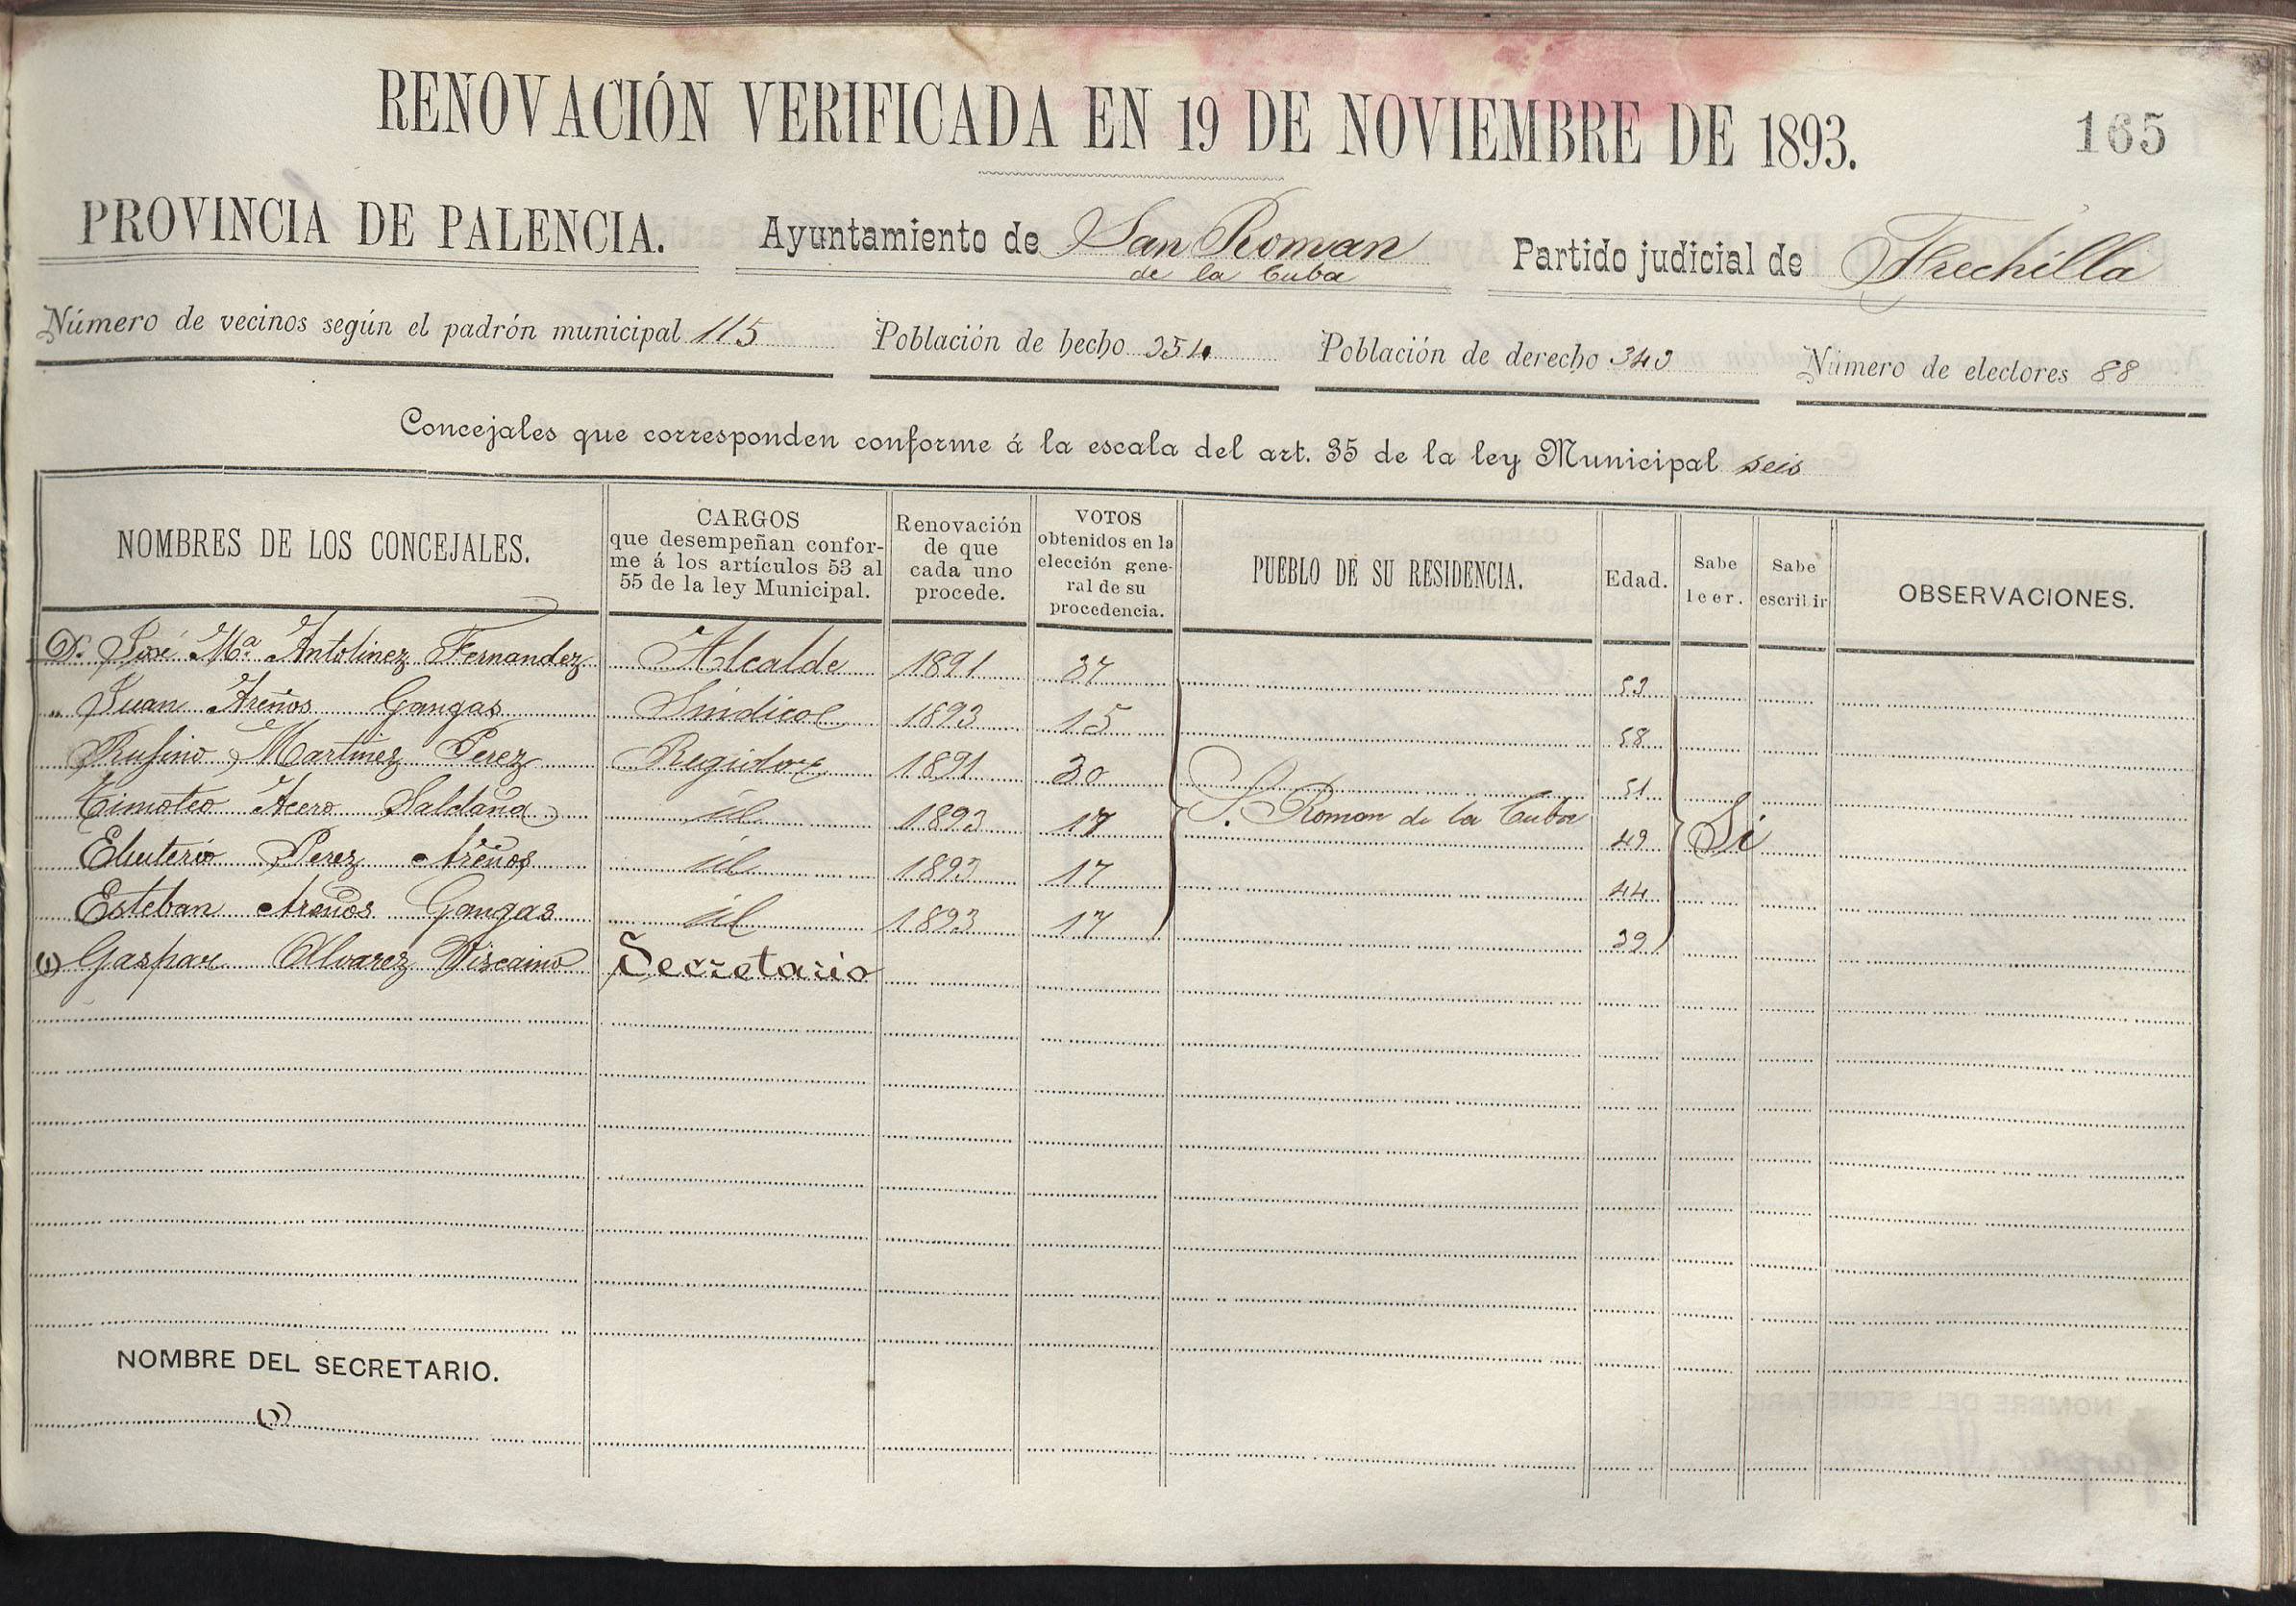 RENOVACIÓN VERIFICADA EN 19 DE NOVIEMBRE DE 1893.
165
PROVINCIA DE PALENCIA. Ayuntamiento de San Roman de la Cuba Partido judicial de Frechilla
Número de vecinos según el padrón municipal 115 Población de hecho 354 Población de derecho 343 Número de electores 88
Concejales que corresponden conforme á la escala del art. 35 de la ley Municipal seis
NOMBRES DE LOS CONCEJALES. CARGOS que desempeñan conforme á los artículos 53 al 55 de la ley Municipal. Renovación de que cada uno procede. VOTOS obtenidos en la elección general de su procedencia. PUEBLO DE SU RESIDENCIA. Edad. Sabe leer. Sabe escribir OBSERVACIONES.
D. José Mª Antolinez Fernandez Alcalde 1891 37 53
" Juan Areños Gangas Sindico 1893 15 58
Rufino Martinez Perez Regidor 1891 30 51
Timoteo Acero Saldaña id 1893 17 S. Roman de la Cuba 49 Si
Eleuterio Perez Areños id 1893 17 44
Esteban Areños Gangas id 1893 17 39
(1) Gaspar Alvarez Viscaino Secretario
NOMBRE DEL SECRETARIO.
(1)